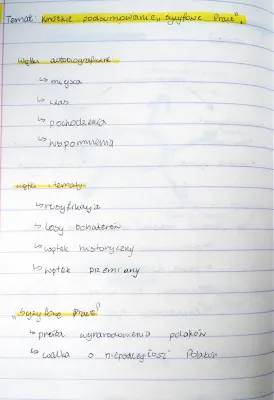 Temat: Krótkie podsumowanie „Syzyfowe Prace".
Wątki autobiograficzne
↳ miejsca
↳ czas
↳ pochodzenia
↳ wspomnienia
wątki i tematy
↳ rusyfikacja
↳ losy bohaterów
↳ wątek historyczny
↳ wątek przemiany
„Syzyfowe Prace"
↳ próba wynarodowienia polaków
↳ walka o niepodległość Polaków